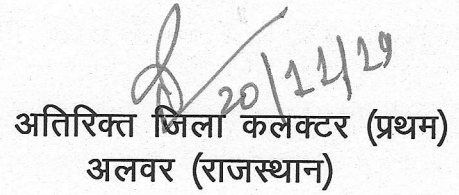 20/11/19
अतिरिक्त जिला कलक्टर (प्रथम)
अलवर (राजस्थान)